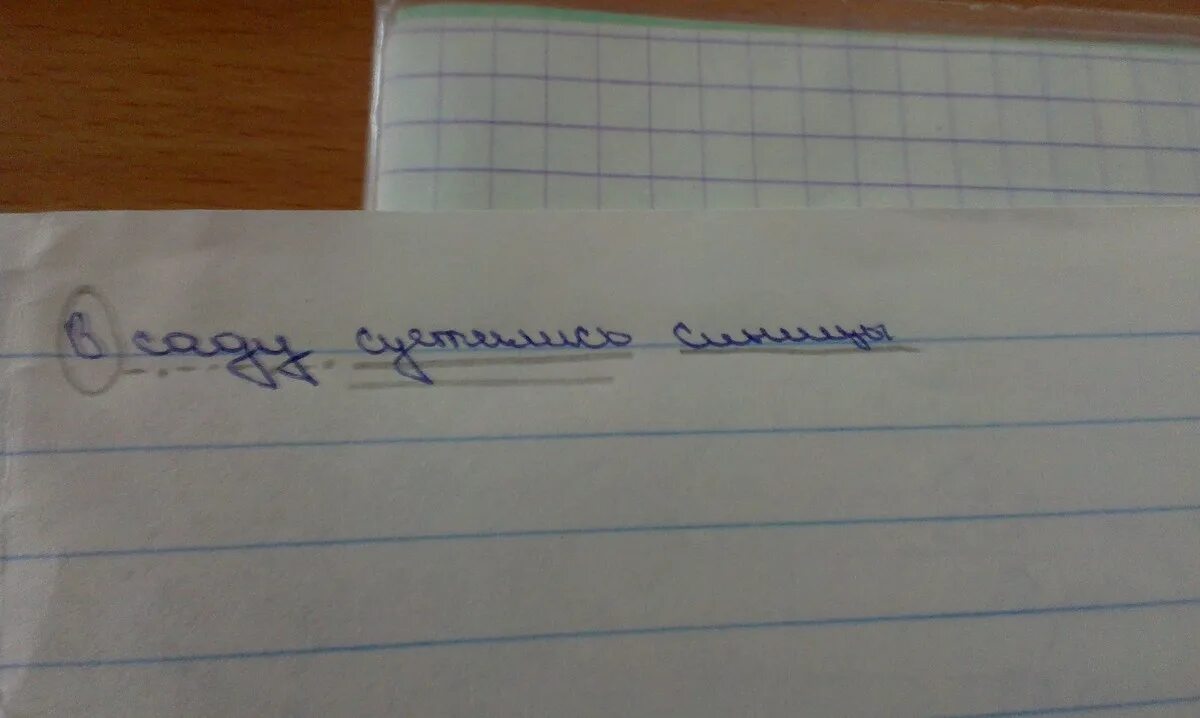 В саду суетились синицы